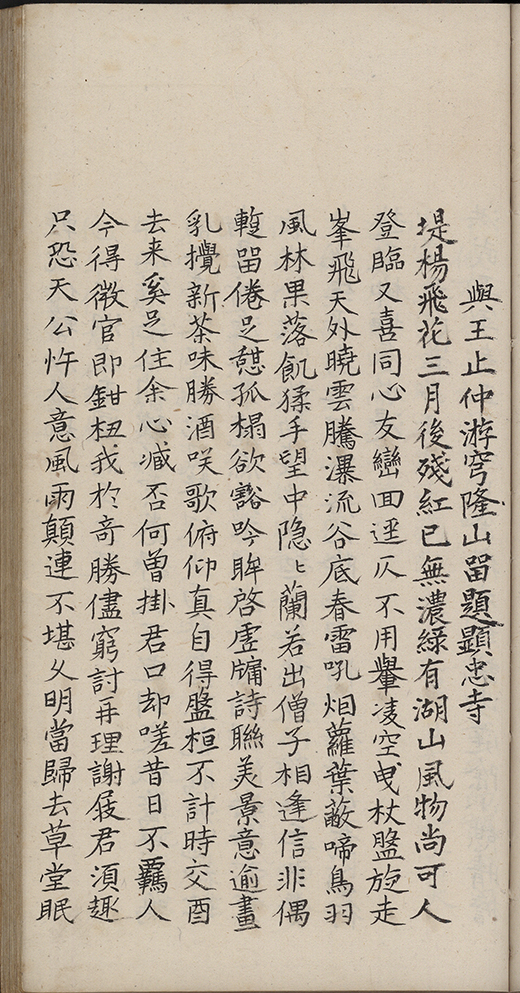 與王止仲游穹隆山畱題顕忠寺
堤楊飛花三月後殘紅已無濃綠有湖山風物尚可人
登臨又喜同心友巒回逕仄不用轝凌空曵杖盤旋走
峯飛天外曉雲騰瀑流谷底春雷吼烟蘿葉蔽啼鳥羽
風林果落飢猱手望中隐〻蘭若出僧子相逢信非偶
蹔畱倦足憇孤榻欲豁吟眸啓虗牖詩聯美景意逾畫
乳攪新茶味勝酒咲歌俯仰真自得盤桓不計時交酉
去来奚足住余心臧否何曾掛君口却嗟昔日不羈人
今得微官即鉗杻我於竒勝儘窮討再理謝屐君湏趣
只恐天公忤人意風雨顛連不堪乆明當歸去草堂眠